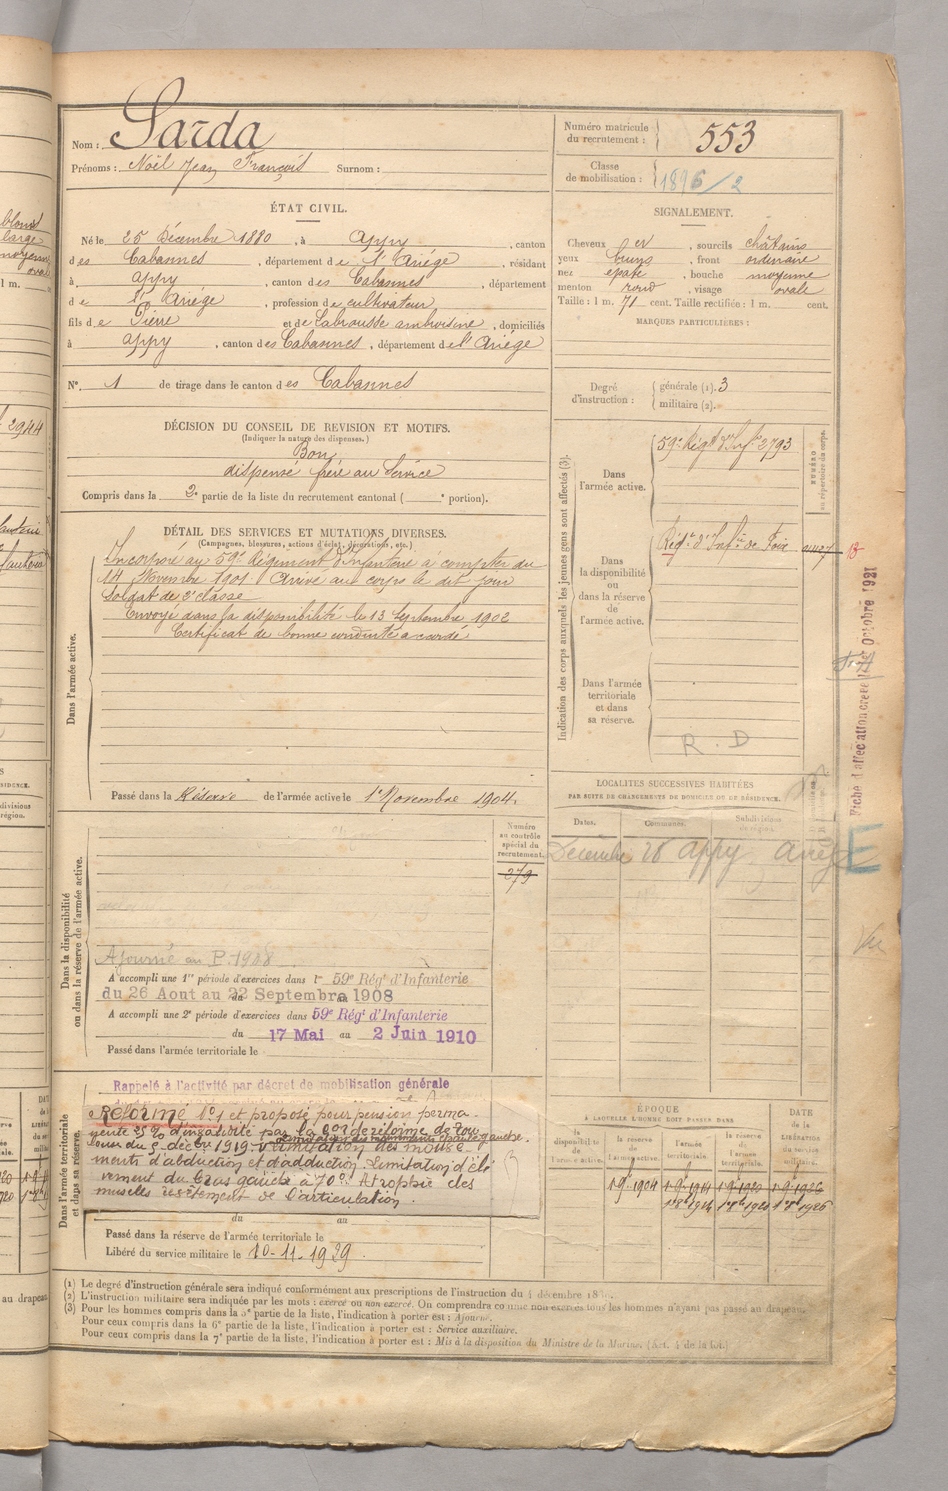 Nom : Sarda
Prénoms : Noël Jean François Surnom :
ÉTAT CIVIL.
Né le 25 Décembre 1880, à Appy, canton
des Cabannes, département de l'Ariège, résidant
à Appy, canton des Cabannes, département
de l'Ariège, profession de cultivateur
fils de Pierre et de Labrousse ambroisine, domiciliés
à Appy, canton des Cabannes, département de l'Ariège
N° 1 de tirage dans le canton des Cabannes
DÉCISION DU CONSEIL DE REVISION ET MOTIFS.
(Indiquer la nature des dispenses.)
Bon
dispensé frère au Service
Compris dans la 2e partie de la liste du recrutement cantonal ( e portion).
DÉTAIL DES SERVICES ET MUTATIONS DIVERSES.
(Campagnes, blessures, actions d'éclat, décorations, etc.)
Dans l'armée active.
Incorporé au 59e Régiment d'Infanterie à compter du
14 Novembre 1901 Arrivé au corps le dit jour
Soldat de 2e classe
Envoyé dans la disponibilité le 13 Septembre 1902
Certificat de bonne conduite accordé
Passé dans la Réserve de l'armée active le 1er Novembre 1904.
Dans la disponibilité
ou dans la réserve de l'armée active.
Numéro
au contrôle
spécial du
recrutement.
279
Ajourné au P. 1908
A accompli une 1re période d'exercices dans le 59e Régt d'Infanterie
du 26 Aout au 22 Septembre 1908
A accompli une 2e période d'exercices dans 59e Régt d'Infanterie
du 17 Mai au 2 Juin 1910
Passé dans l'armée territoriale le
Dans l'armée territoriale
et dans sa réserve.
Rappelé à l'activité par décret de mobilisation générale
Réformé N°1 et proposé pour pension perma-
nente 25 % d'invalidité par la con de réforme de Tou-
louse du 5 décbre 1919. Limitation des mouve-
ments d'abduction et d'adduction. Limitation d'élé
vement du bras gauche à 70°. Atrophie des
muscles revêtement de l'articulation.
du au
Passé dans la réserve de l'armée territoriale le
Libéré du service militaire le 10-11-1929.
Numéro matricule
du recrutement : 553
Classe
de mobilisation : 1896/2
SIGNALEMENT.
Cheveux et, sourcils châtains
yeux bruns, front ordinaire
nez épaté, bouche moyenne
menton rond, visage ovale
Taille : 1 m. 71 cent. Taille rectifiée : 1 m. cent.
MARQUES PARTICULIÈRES :
Degré
d'instruction :
générale (1). 3
militaire (2).
Indication des corps auxquels les jeunes gens sont affectés (3).
NUMÉRO
au répertoire du corps.
Dans
l'armée active.
59e Régt d'Infie 2793
Dans
la disponibilité
ou
dans la réserve
de
l'armée active.
Régt d'Infie de Foix
Dans l'armée
territoriale
et dans
sa réserve.
R. D
Fiche d'affectation créée le 1er Octobre 1921
LOCALITÉS SUCCESSIVES HABITÉES
PAR SUITE DE CHANGEMENTS DE DOMICILE OU DE RÉSIDENCE.
Dates. Communes. Subdivisions
de région.
Décembre 28 Appy Ariège
E
ÉPOQUE
À LAQUELLE L'HOMME DOIT PASSER DANS
DATE
de la
LIBÉRATION
du
service
militaire.
la
disponibilité
de
l'armée active.
la réserve
de
l'armée active.
l'armée
territoriale.
la réserve
de
l'armée
territoriale.
1-9-1904 1-9-1914 1-9-1920 1-9-1926
(1) Le degré d'instruction générale sera indiqué conformément aux prescriptions de l'instruction du 4 décembre
(2) L'instruction militaire sera indiquée par les mots : exercé ou non exercé. On comprendra comme non exercés tous les hommes n'ayant pas passé au drapeau.
(3) Pour les hommes compris dans la 5e partie de la liste, l'indication à porter est : Ajourné.
Pour ceux compris dans la 6e partie de la liste, l'indication à porter est : Service auxiliaire.
Pour ceux compris dans la 7e partie de la liste, l'indication à porter est : Mis à la disposition du Ministre de la Marine. (Art. 4 de la loi.)